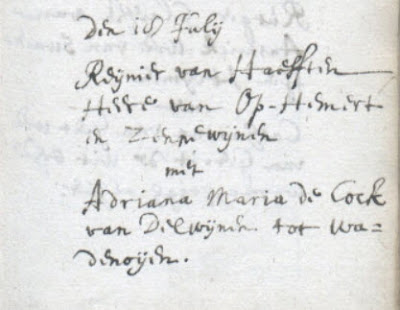 Den 18 July
Reynier van Haeften
Heere van Op-Hemert
en Zennewynen
met
Adriana Maria de Cock
van Delwynen tot Wa-
denoyen.